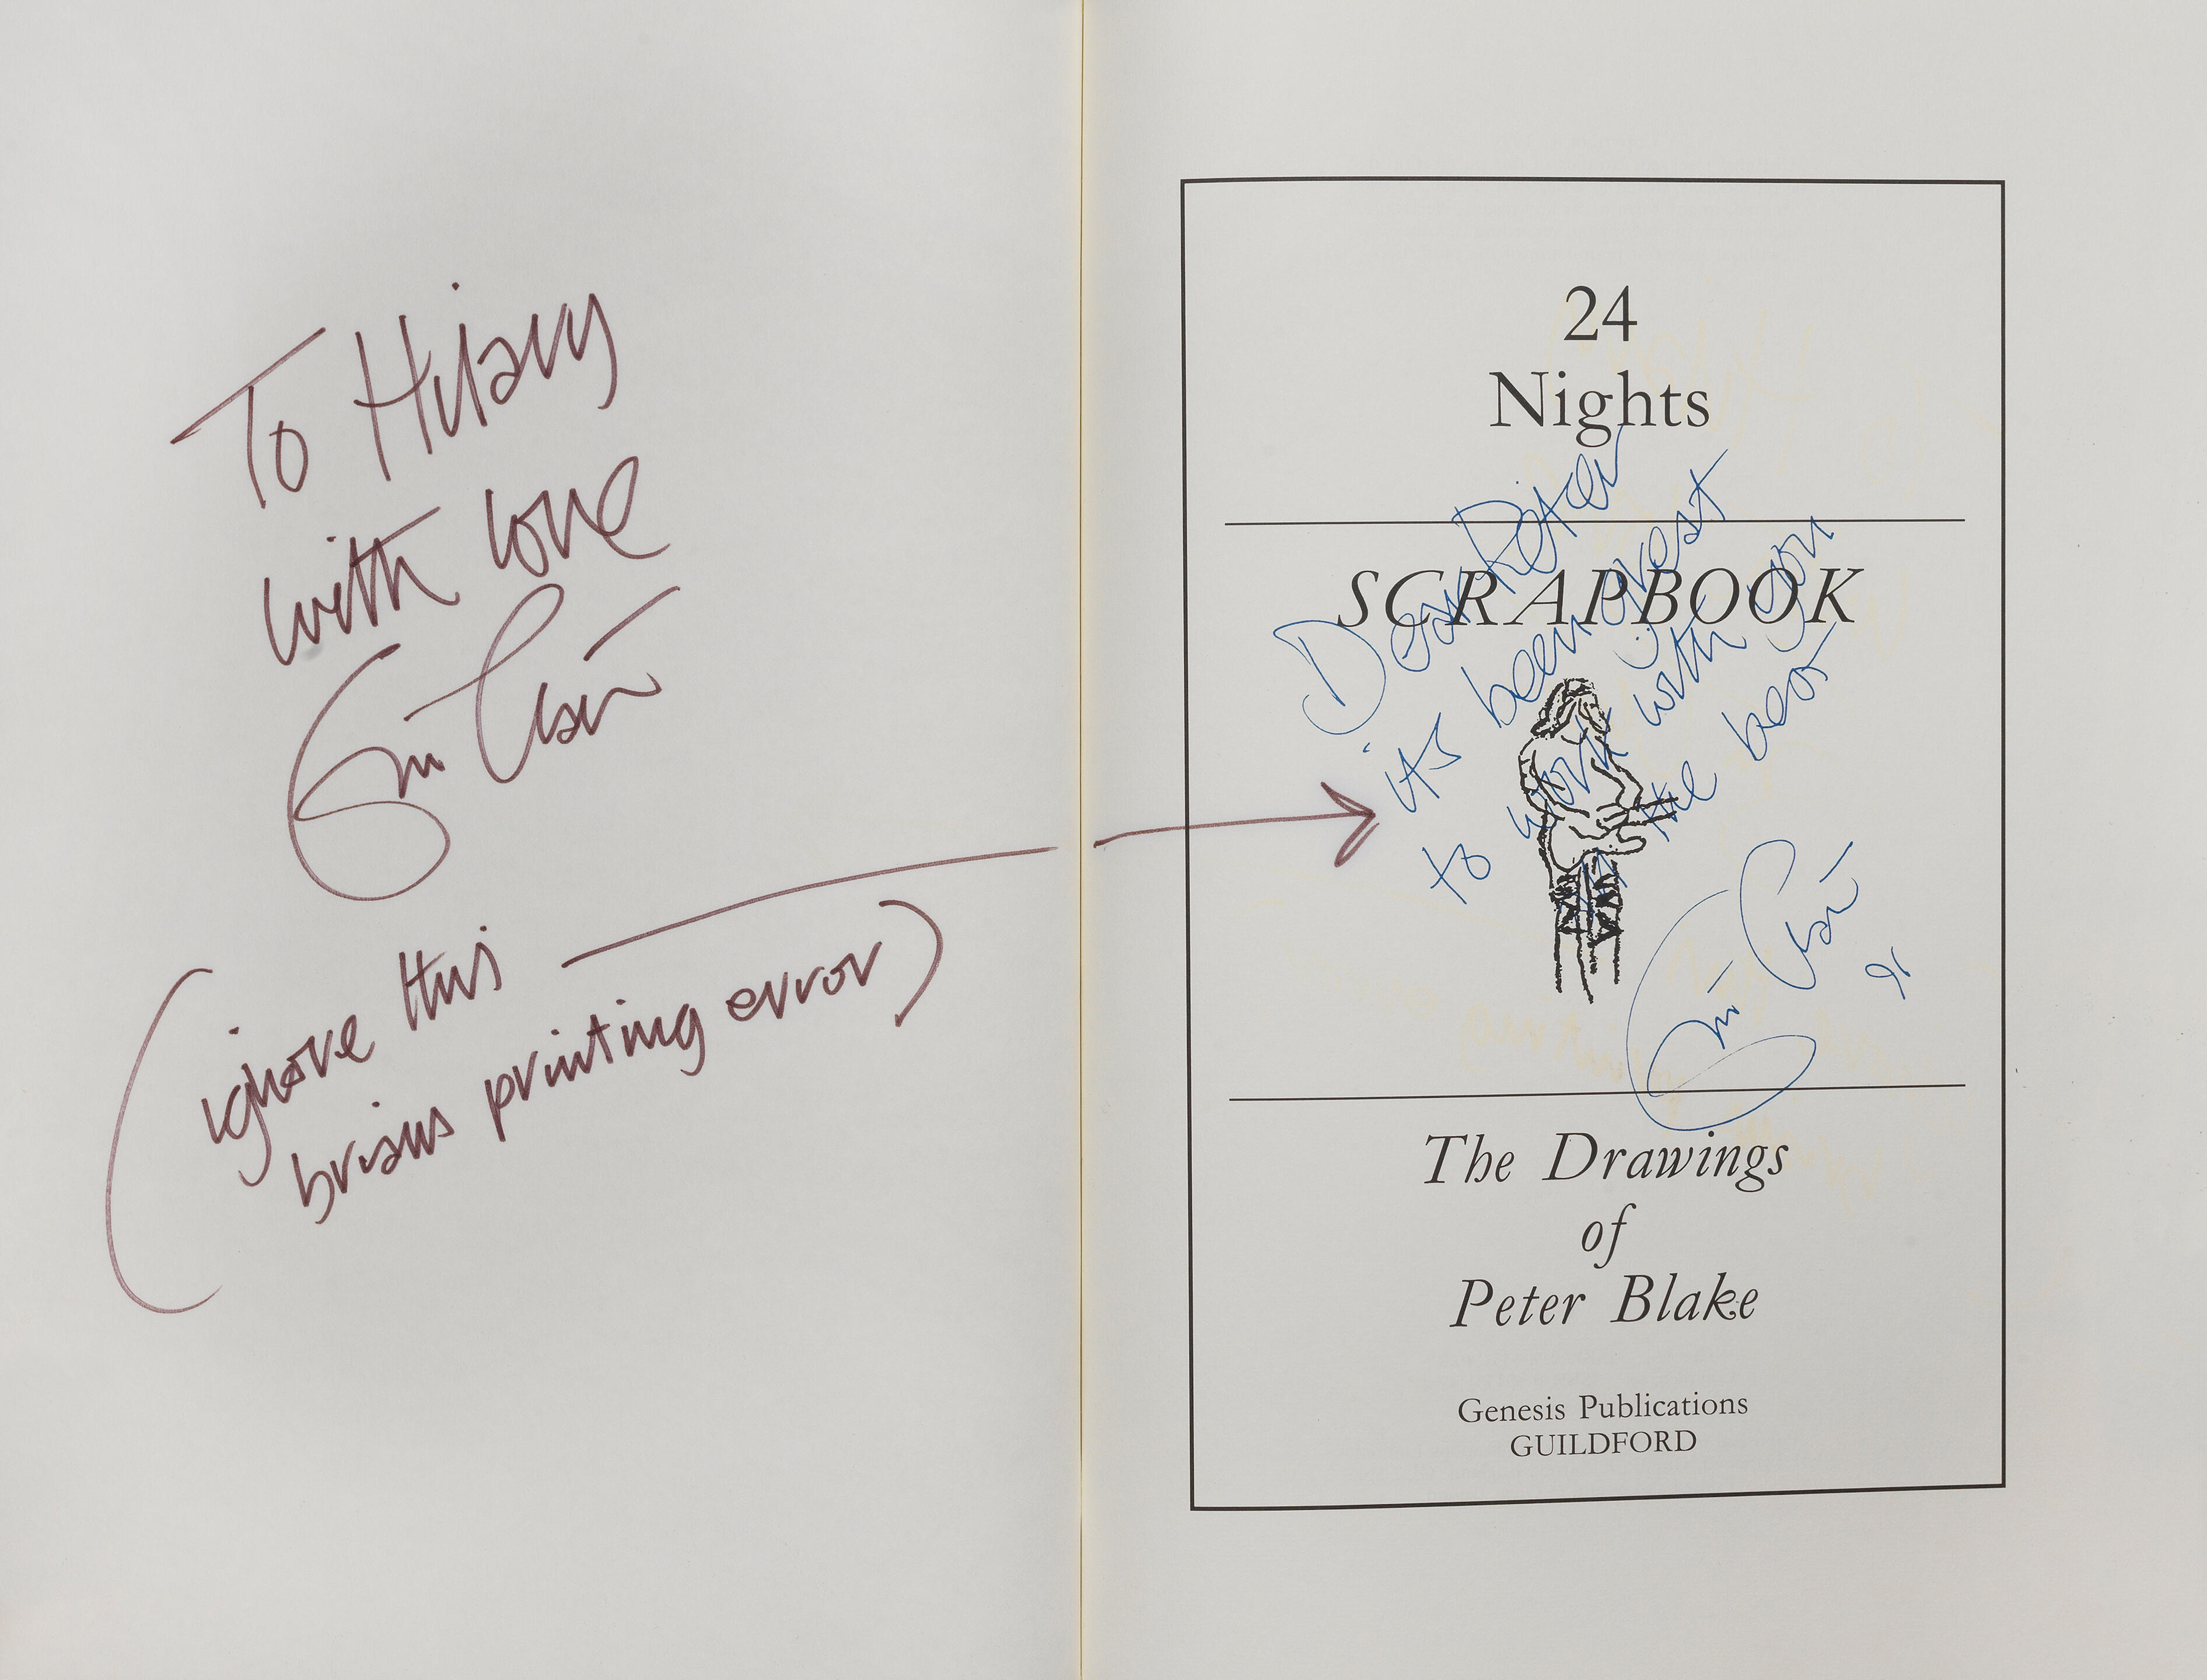 To Hilary
with love
Eric Clapton
(ignore this
brians printing error)
24
Nights
SCRAPBOOK
Dear Peter
its been great
to work with you
all the best
Eric Clapton
91
The Drawings
of
Peter Blake
Genesis Publications
GUILDFORD